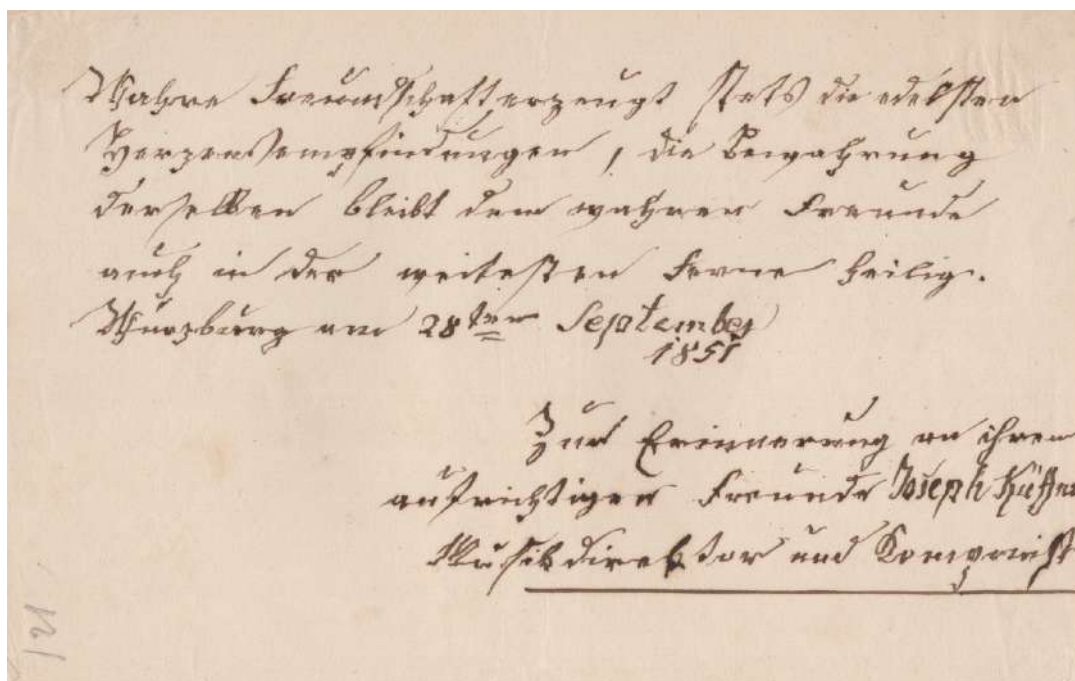 Wahre Freundschaft erzeugt stets die edelsten
Herzensempfindungen, die Bewahrung
derselben bleibt dem wahren Freunde
auch in der weitesten Ferne heilig.
Würzburg am 28ten September
1851
Zur Erinnerung an ihren
aufrichtigen Freunde Joseph Küffner
Musikdirektor und Komponist
121